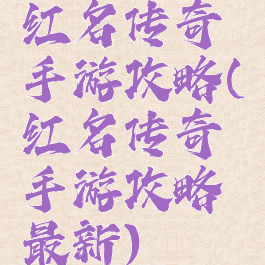 红名传奇
手游攻略(
红名传奇
手游攻略
最新)